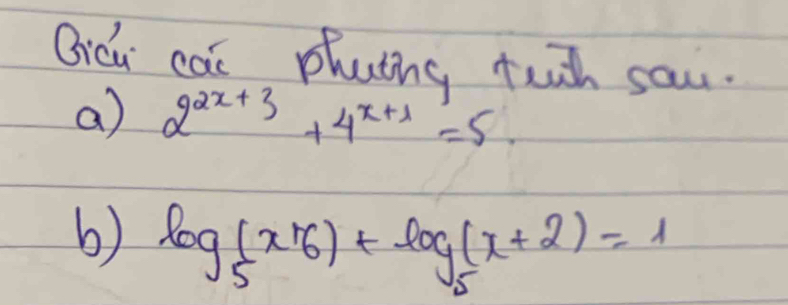 Giải các phương trình sau.
a) 2^{2x+3} + 4^{x+1} = 5.
b) log_5(x+6) + log_5(x+2) = 1